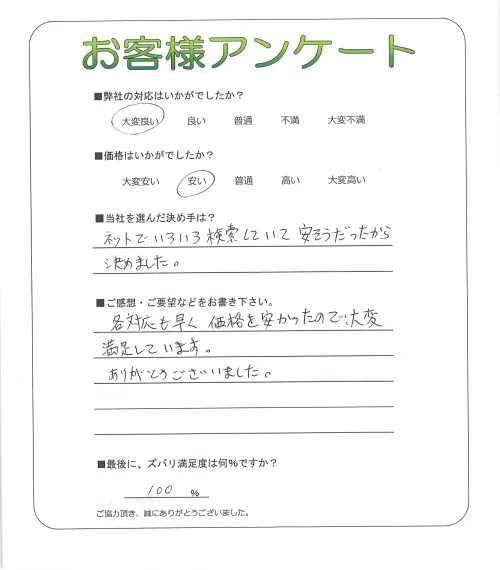 お客様アンケート
■弊社の対応はいかがでしたか？
大変良い 良い 普通 不満 大変不満
■価格はいかがでしたか？
大変安い 安い 普通 高い 大変高い
■当社を選んだ決め手は？
ネットでいろいろ検索していて 安そうだったから
決めました。
■ご感想・ご要望などをお書き下さい。
各対応も早く 価格も安かったので、大変
満足しています。
ありがとうございいました。
■最後に、ズバリ満足度は何%ですか？
100 %
ご協力頂き、誠にありがとうございました。